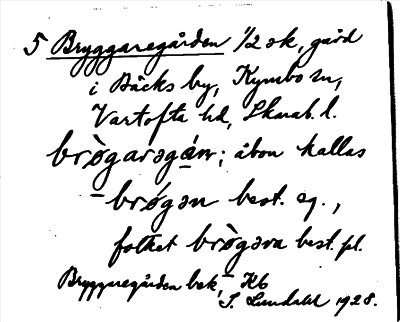 5 Bryggaregården 1/2 sk, gård
i Bäcks by, Kymbo sn,
Vartofta hd, Skarab. l.
brògaragán; åbon kallas
- brǿgan best. sg.,
folket brògəra best. pl.
Bryggaregården bek, Kb
S. Lundahl 1928.